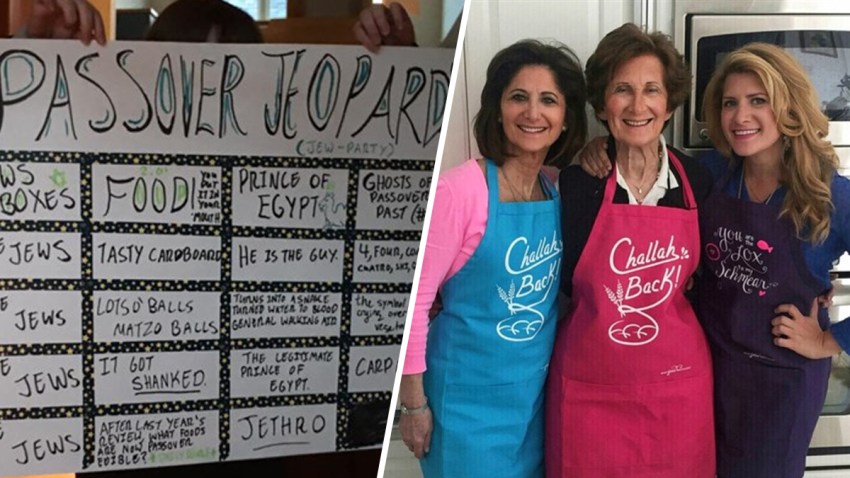 PASSOVER JEOPARD
(JEW-PARTY)
WS
BOXES
FOOD! 2.0
YOU PUT IT IN YOUR MOUTH
PRINCE OF
EGYPT
GHOSTS OF
PASSOVER
PAST (#
E JEWS
TASTY CARDBOARD
HE IS THE GUY.
4, FOUR,
E JEWS
LOTS O' BALLS
MATZO BALLS
TURNS INTO A SNAKE
TURNED WATER TO BLOOD
GENERAL WALKING AID
the symbol
crying over
E JEWS
IT GOT
SHANKED.
THE LEGITIMATE
PRINCE OF
EGYPT.
CARP
E JEWS
AFTER LAST YEAR'S
REVIEW, WHAT FOODS
ARE NOW PASSOVER
EDIBLE?
JETHRO
Challah
Back!
Challah
Back!
You are the
Lox
to my
Schmear